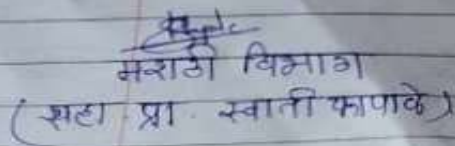 मराठी विभाग
(सहा. प्रा. स्वाती कापावे)